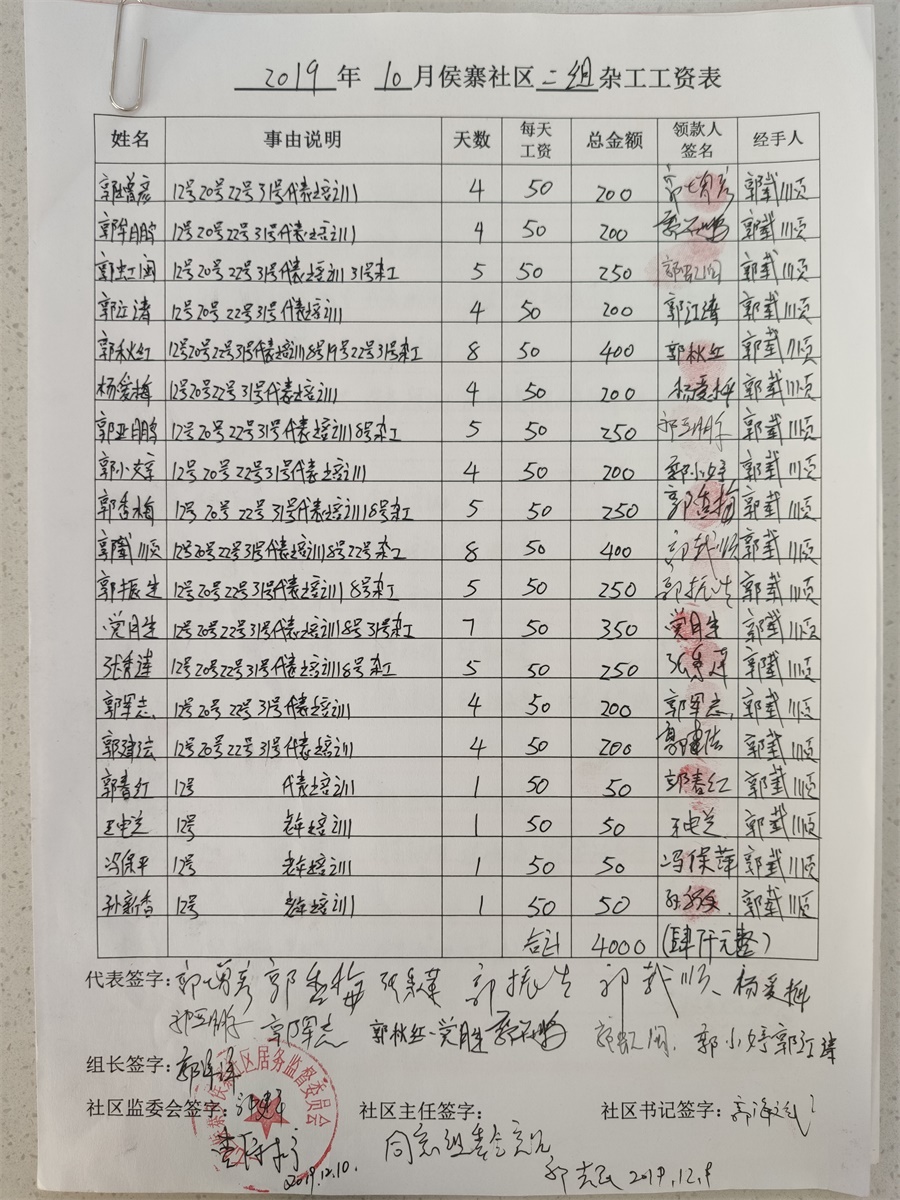 2019 年 10 月侯寨社区 二组 杂工工资表
姓名 事由说明 天数 每天工资 总金额 领款人签名 经手人
郭增彦 12号20号22号31号代表培训 4 50 200 郭增彦 郭战顺
郭军鹏 12号20号22号31号代表培训 4 50 200 郭战顺
郭虹闽 12号20号 22号31号代表培训 31号杂工 5 50 250 郭虹闽 郭战顺
郭江涛 12号20号 22号31号代表培训 4 50 200 郭江涛 郭战顺
郭秋红 12号20号22号31号代表培训8号19号22号31号杂工 8 50 400 郭秋红 郭战顺
杨爱梅 12号20号22号31号代表培训 4 50 200 杨爱梅 郭战顺
郭亚鹏 12号20号22号31号代表培训8号杂工 5 50 250 郭亚鹏 郭战顺
郭小婷 12号20号22号31号代表培训 4 50 200 郭小婷 郭战顺
郭香梅 12号 20号 22号31号代表培训8号杂工 5 50 250 郭香梅 郭战顺
郭战顺 12号20号22号31号代表培训8号22号杂工 8 50 400 郭战顺 郭战顺
郭振生 12号20号22号31号代表培训 8号杂工 5 50 250 郭振生 郭战顺
党月生 12号20号22号31号代表培训8号31号杂工 7 50 350 党月生 郭战顺
张秀莲 12号20号22号31号代表培训8号杂工 5 50 250 张秀莲 郭战顺
郭军志 12号20号22号31号代表培训 4 50 200 郭军志 郭战顺
郭建宏 12号20号22号31号代表培训 4 50 200 郭战顺
郭春红 12号 代表培训 1 50 50 郭春红 郭战顺
王电兰 12号 老年培训 1 50 50 王电兰 郭战顺
冯保平 12号 老年培训 1 50 50 冯保萍 郭战顺
孙新香 12号 老年培训 1 50 50 郭战顺
合计 4000 (肆仟元整)
代表签字: 郭增彦 郭香梅 张秀莲 郭振生 郭战顺 杨爱梅
郭亚鹏 郭军志 郭秋红 党月生 郭虹闽 郭小婷 郭江涛
组长签字:
社区监委会签字: 社区主任签字: 社区书记签字:
同意组委会意见
2019.12.10. 2019.12.9